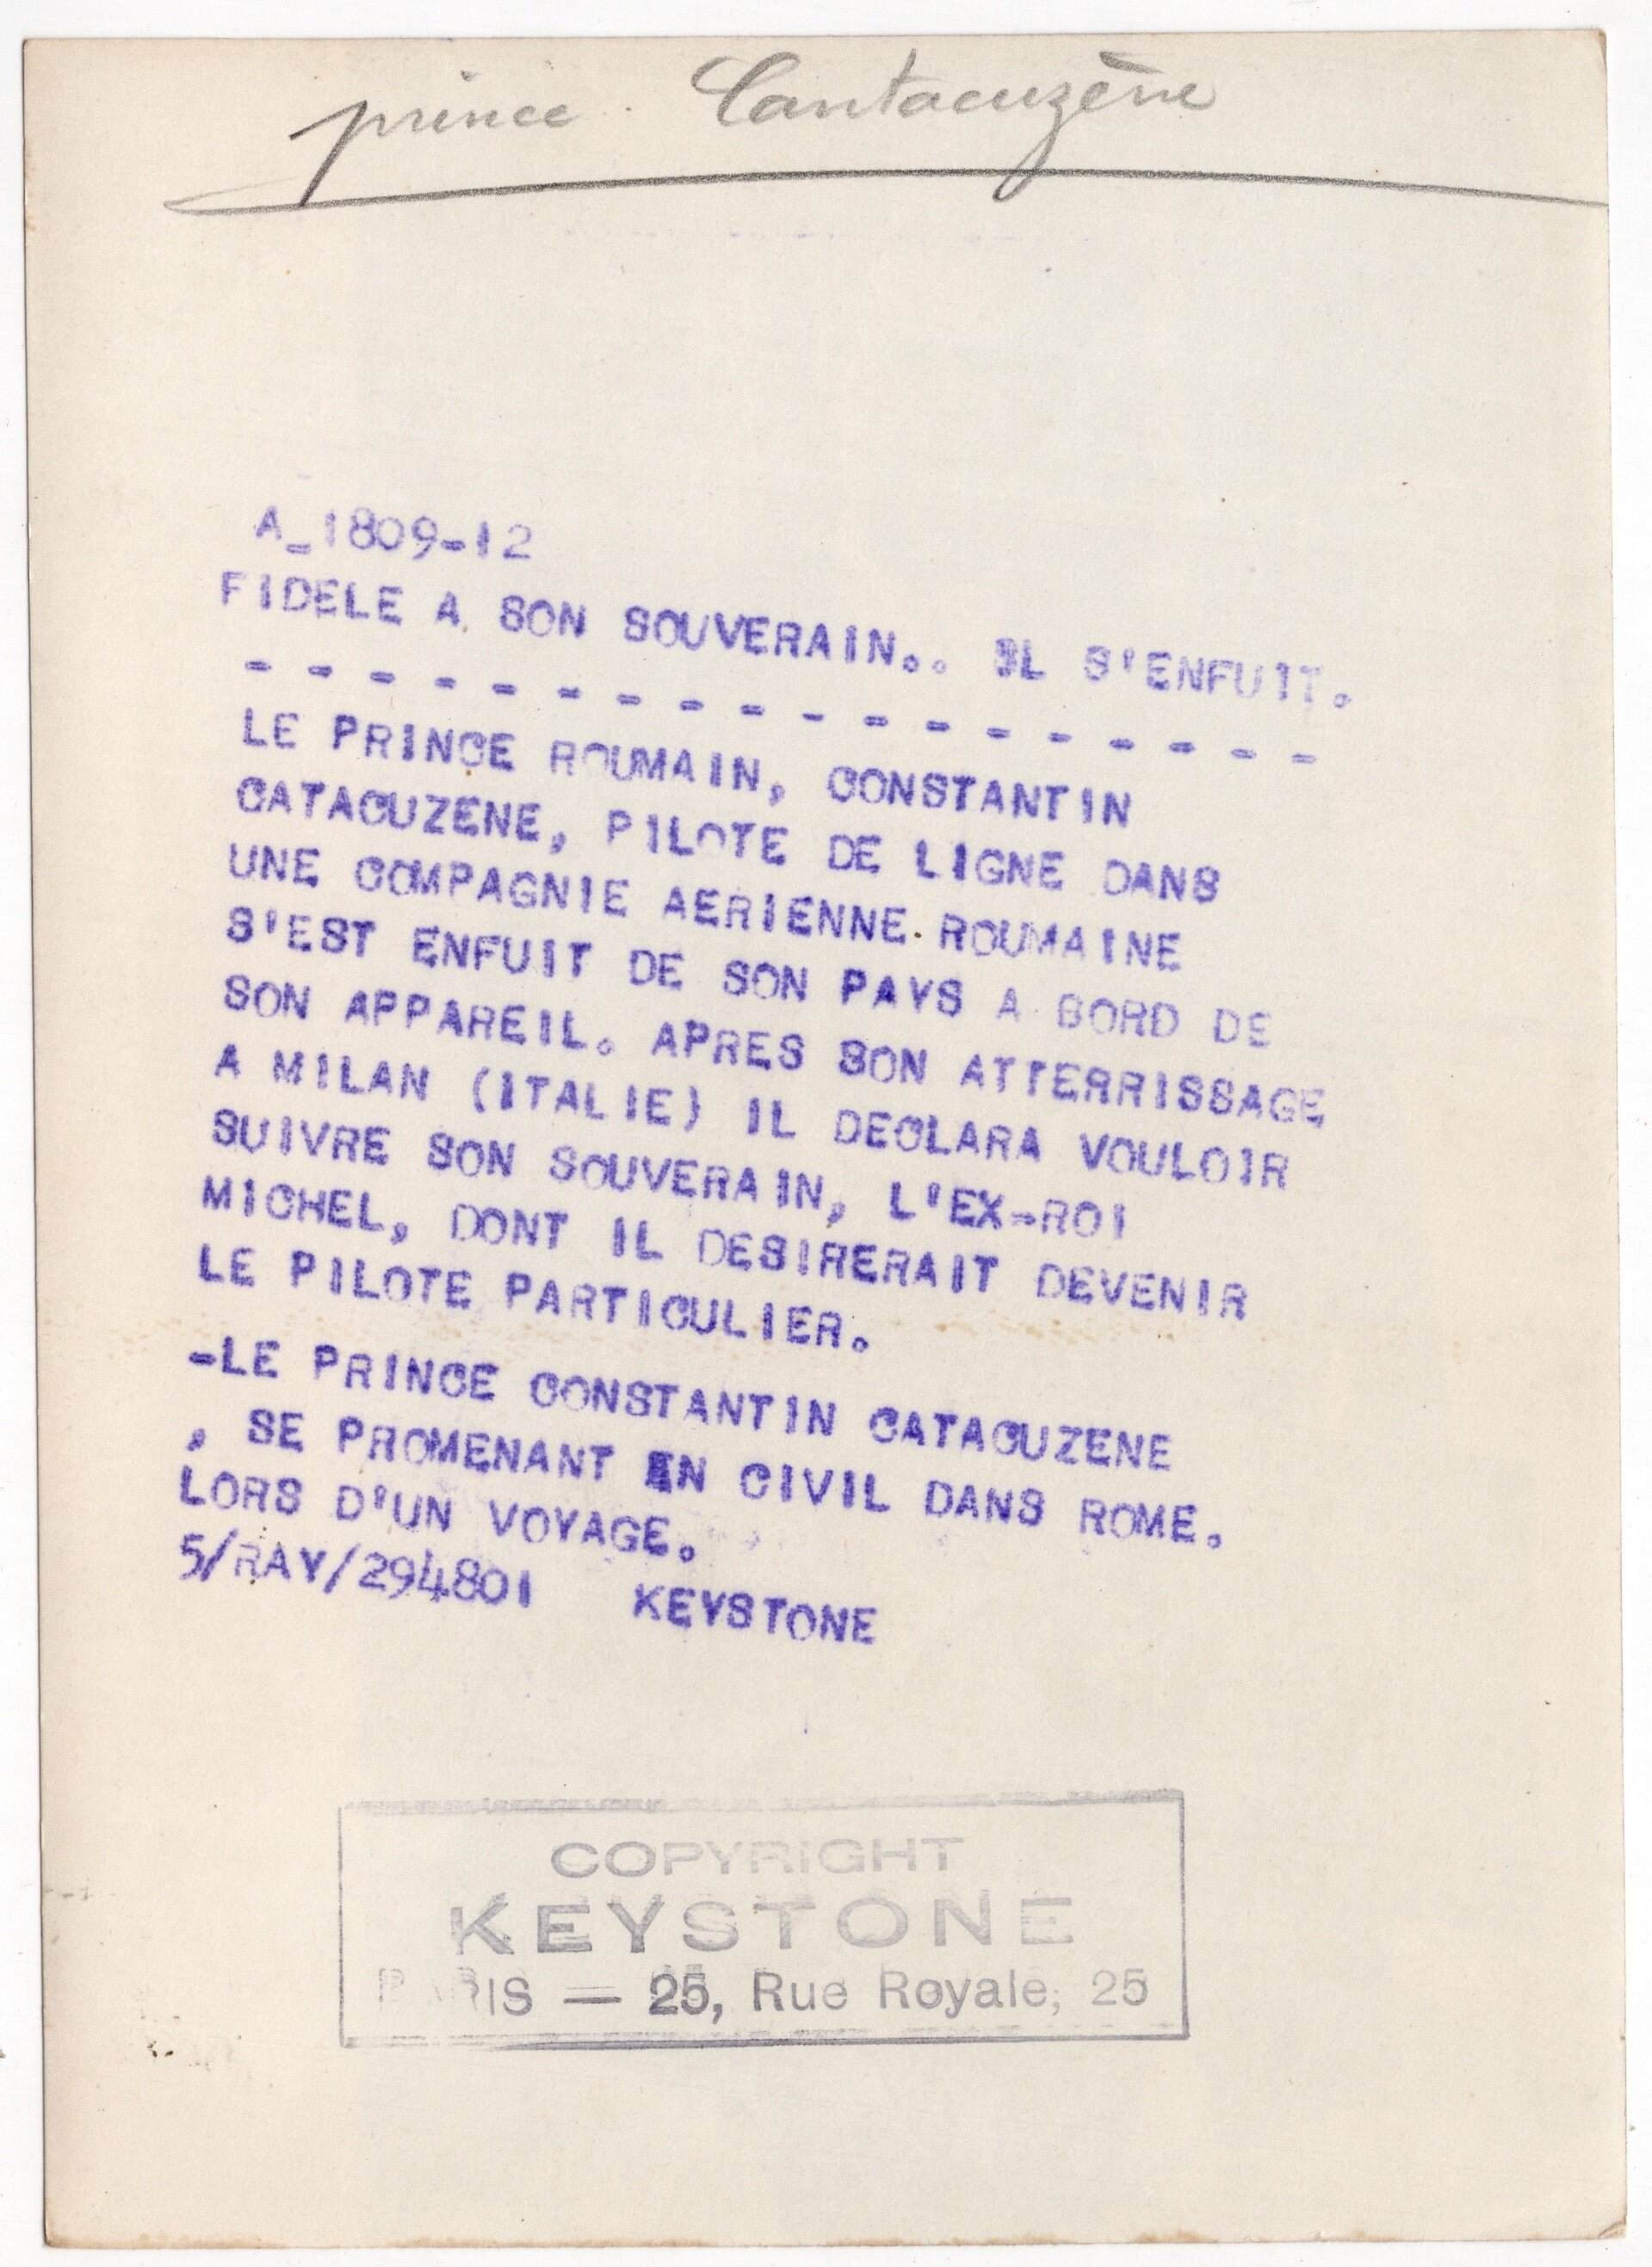 prince Cantacuzène
A_1809-12
FIDELE A SON SOUVERAIN.. IL S'ENFUIT.
- - - - - - - - - - - - - - - - - -
LE PRINCE ROUMAIN, CONSTANTIN
CATACUZENE, PILOTE DE LIGNE DANS
UNE COMPAGNIE AERIENNE ROUMAINE
S'EST ENFUIT DE SON PAYS A BORD DE
SON APPAREIL. APRES SON ATTERRISSAGE
A MILAN (ITALIE) IL DECLARA VOULOIR
SUIVRE SON SOUVERAIN, L'EX-ROI
MICHEL, DONT IL DESIRERAIT DEVENIR
LE PILOTE PARTICULIER.
-LE PRINCE CONSTANTIN CATACUZENE
, SE PROMENANT EN CIVIL DANS ROME.
LORS D'UN VOYAGE.
5/RAY/294801 KEYSTONE
COPYRIGHT
KEYSTONE
PARIS — 25, Rue Royale, 25